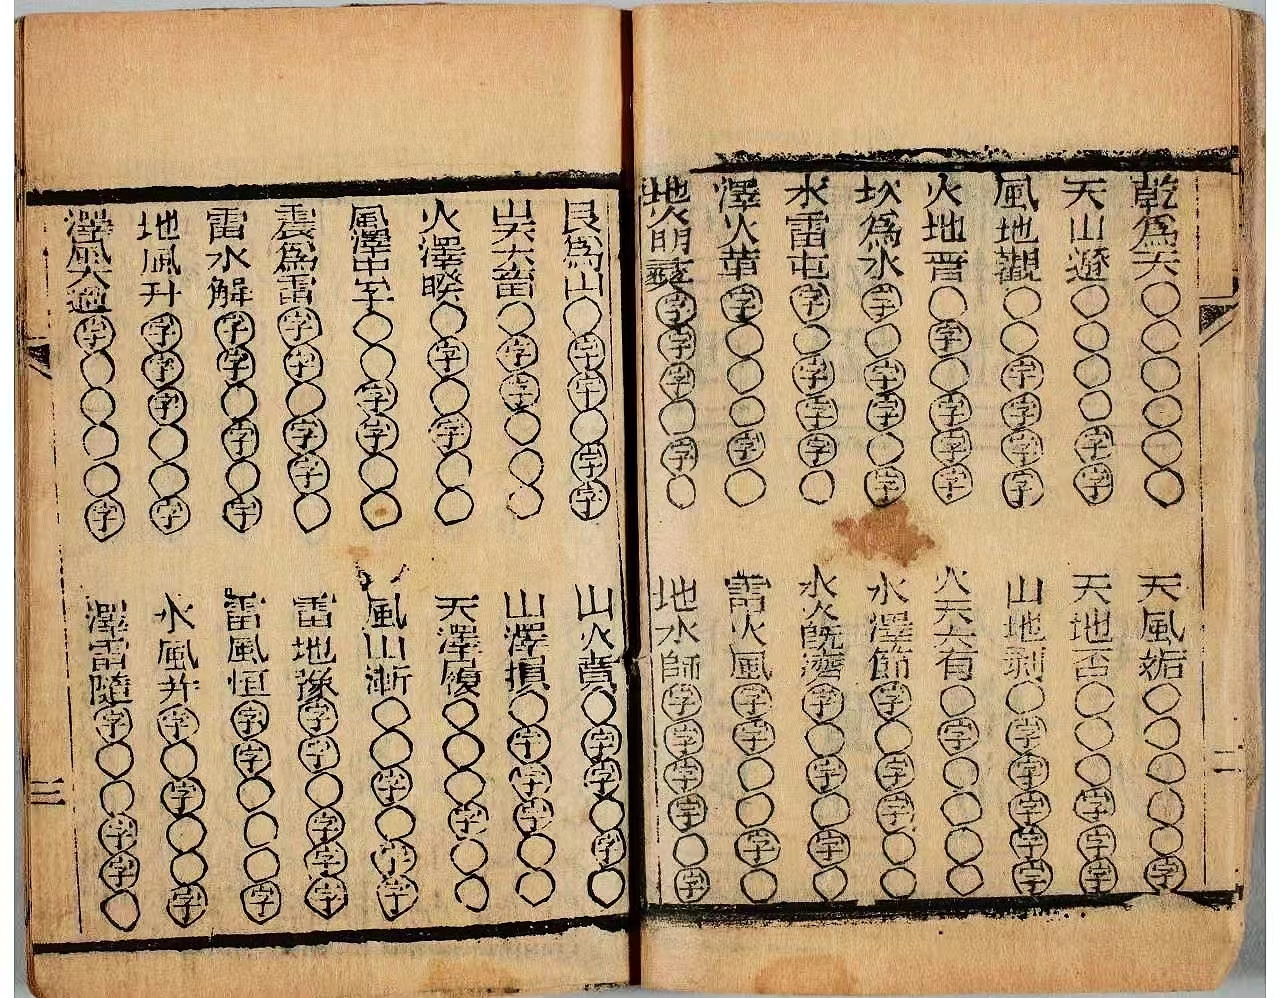 乾為天○○○○○○
天風姤○○○○○字
天山遯○○○○字字
天地否○○○字字字
風地觀○○字字字字
山地剥○字字字字字
火地晋○字○字字字
火天大有○字○○○○
坎為水字○字字○字
水澤節字○字字○○
水雷屯字○字字字○
水火既濟字○字○字○
澤火革字○○○字○
雷火風字字○○字○
地火明字字字○字○
地水師字字字字○字
二
艮為山○字字○字字
山火賁○字字○字○
山天大畜○字字○○○
山澤損○字字字○○
火澤睽○字○字○○
天澤履○○○字○○
風澤中孚○○字字○○
風山漸○○字○字字
震為雷字字○字字○
雷地豫字字○字字字
雷水解字字○字○字
雷風恒字字○○○字
地風升字字字○○字
水風井字○字○○字
澤風大過字○○○○字
澤雷隨字○○字字○
三